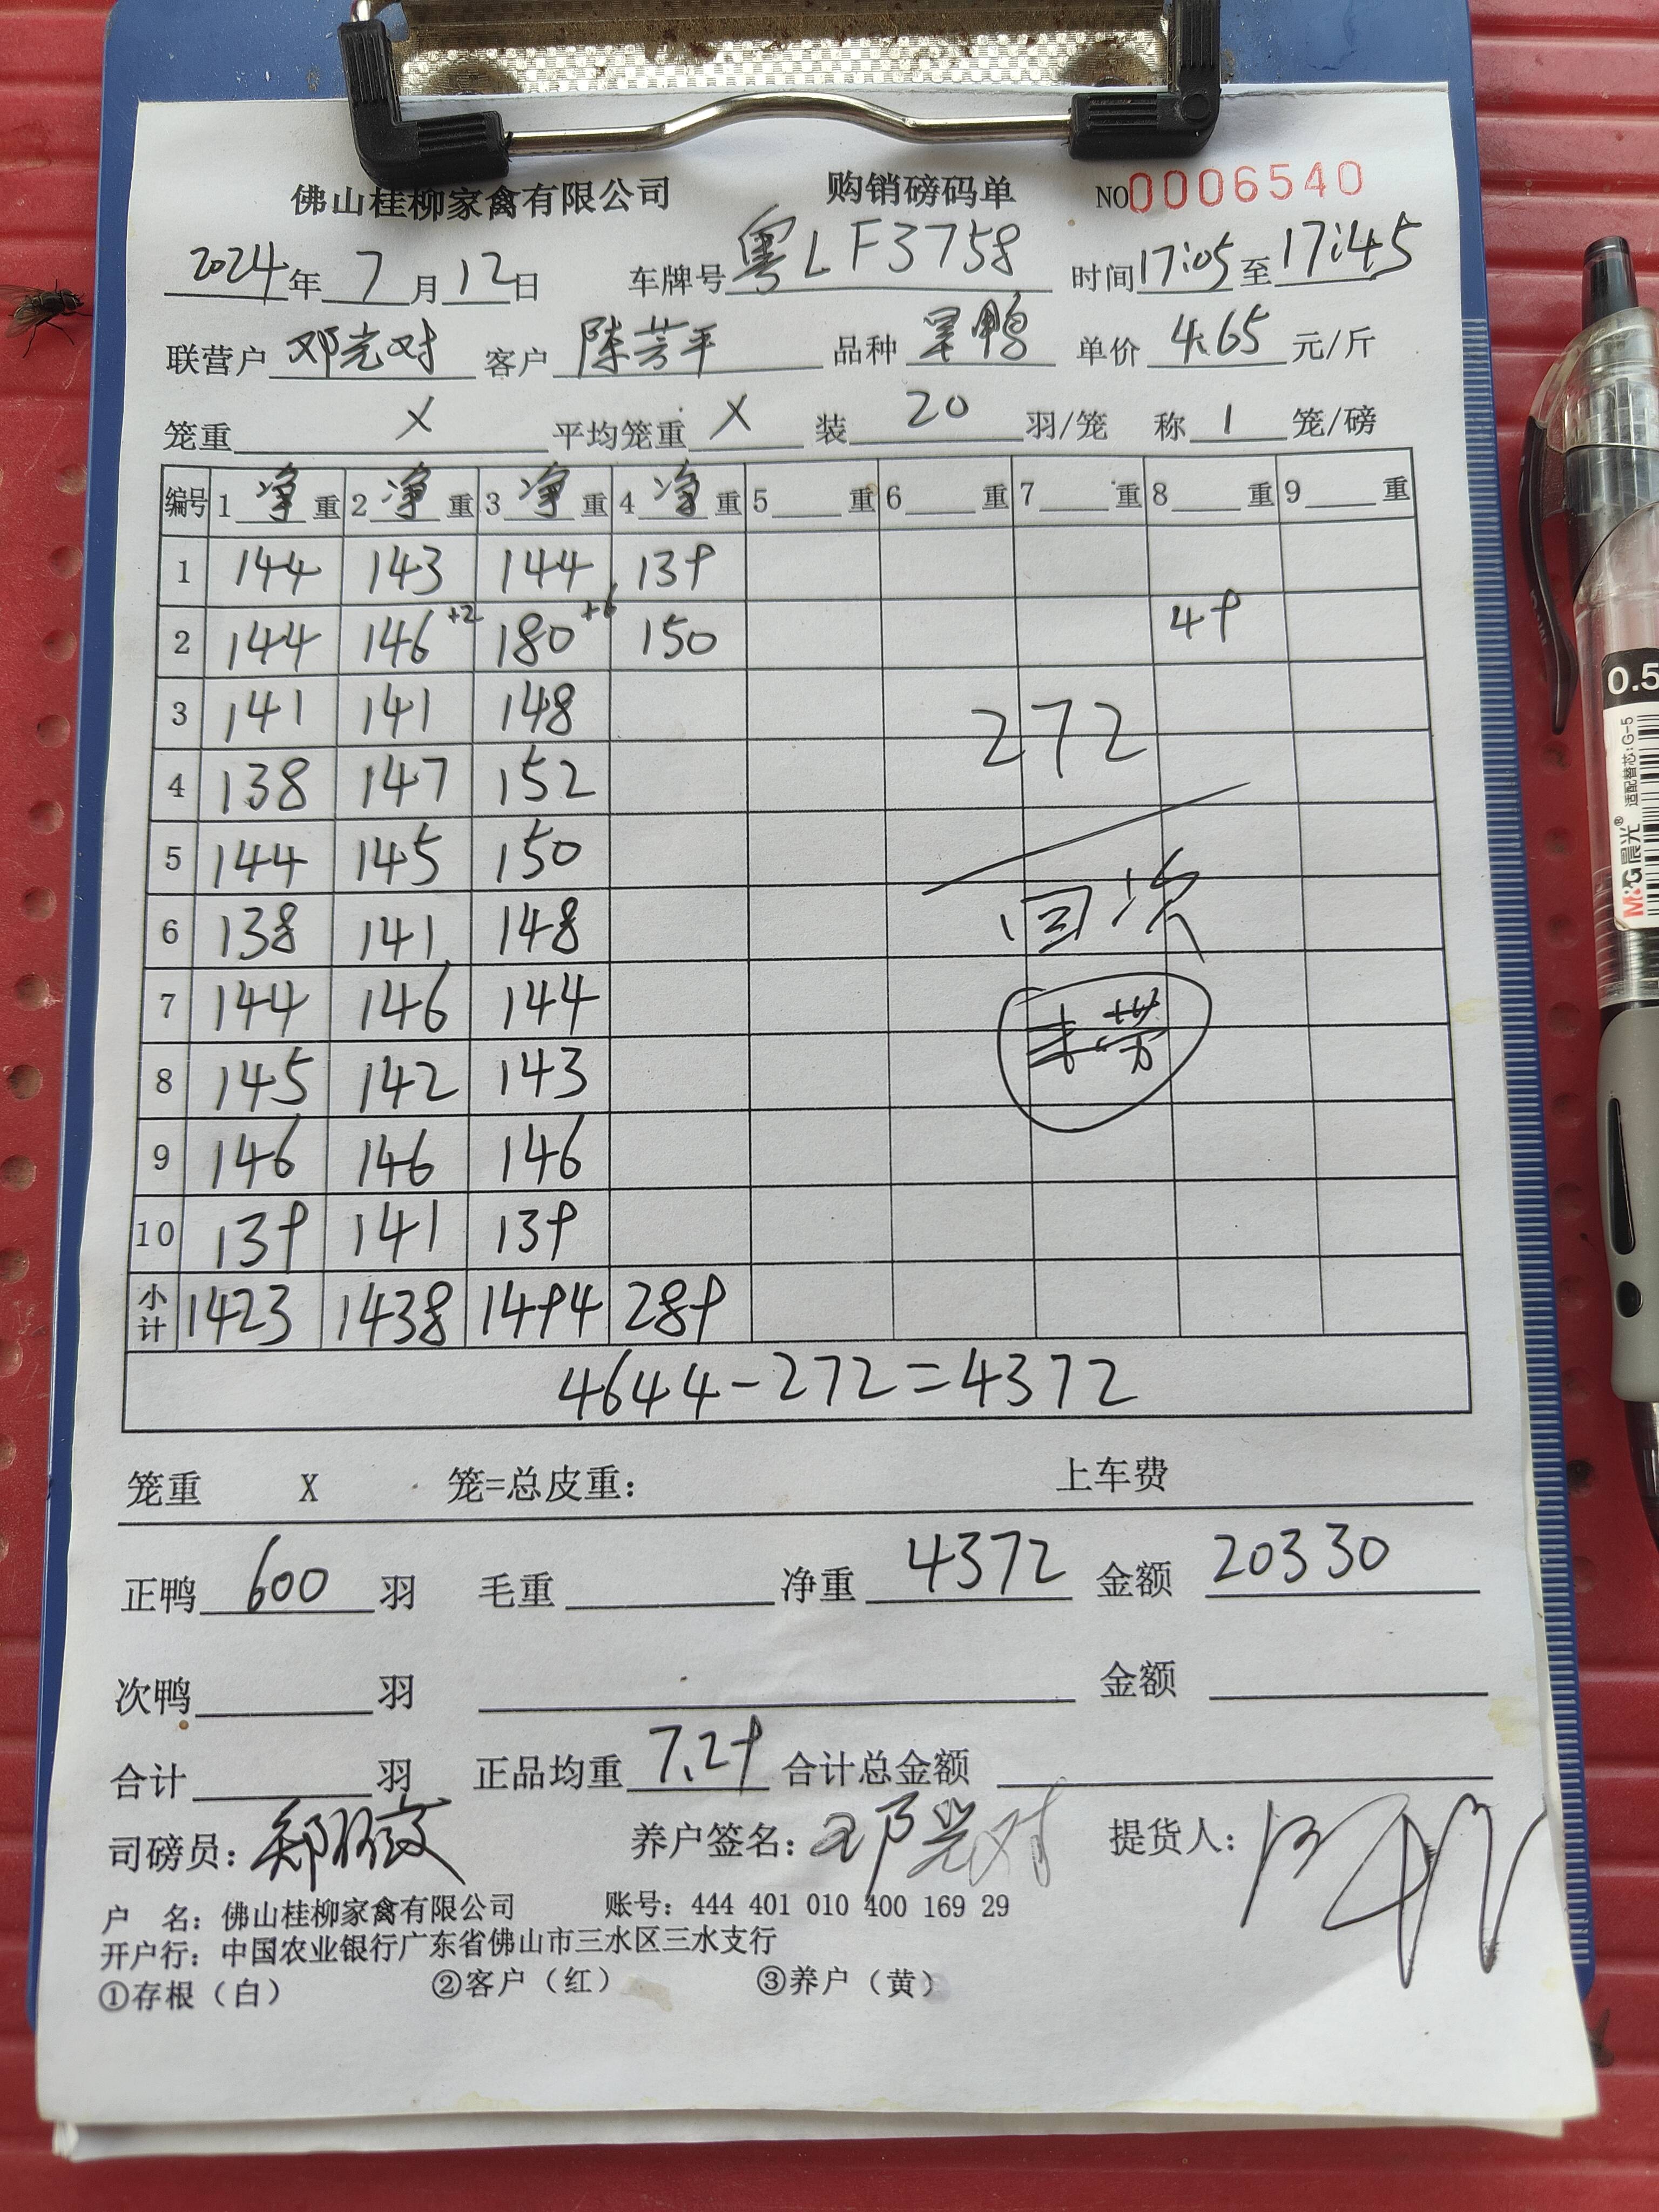 佛山桂柳家禽有限公司 购销磅码单 NO0006540
2024年7月12日 车牌号粤LF3758 时间17:05至17:45
联营户 邓光对 客户 陈芳平 品种 单价 4.65 元/斤
笼重 X 平均笼重 X 装 20 羽/笼 称 1 笼/磅
编号 1 净 重 2 净 重 3 净 重 4 净 重 5 重 6 重 7 重 8 重 9 重
1 144 143 144 139
2 144 146 +2 180 +6 150 49
3 141 141 148
272
4 138 147 152
5 144 145 150
6 138 141 148 回次
7 144 146 144
8 145 142 143
9 146 146 146
10 139 141 139
小计 1423 1438 1494 289
4644-272=4372
笼重 X 笼=总皮重: 上车费
正鸭 600 羽 毛重 净重 4372 金额 20330
次鸭 羽 金额
合计 羽 正品均重 7.29 合计总金额
司磅员: 养户签名: 邓光对 提货人:
户 名: 佛山桂柳家禽有限公司 账号: 444 401 010 400 169 29
开户行: 中国农业银行广东省佛山市三水区三水支行
①存根(白) ②客户(红) ③养户(黄)
0.5
M&G晨光® 适配替芯:G-5